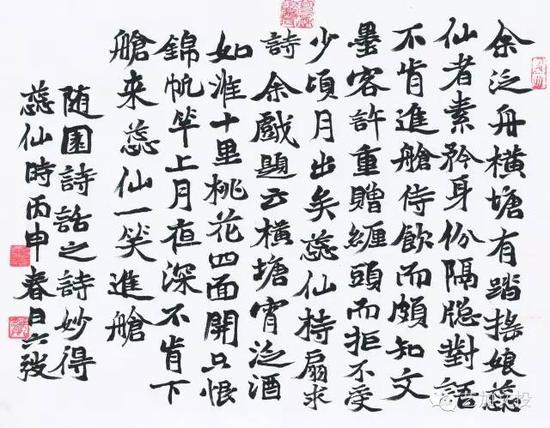 余泛舟橫塘有踏摇娘蕊
仙者素矜身份隔牕對語
不肯進艙侍飲而頗知文
墨客許重贈纏頭而拒不受
少頃月出矣蕊仙持扇求
詩余戲題云橫塘宵泛酒
如淮十里桃花四面開只恨
錦帆竿上月夜深不肯下
艙来蕊仙一笑進艙
随園詩話之詩妙得
蕊仙時丙申春日